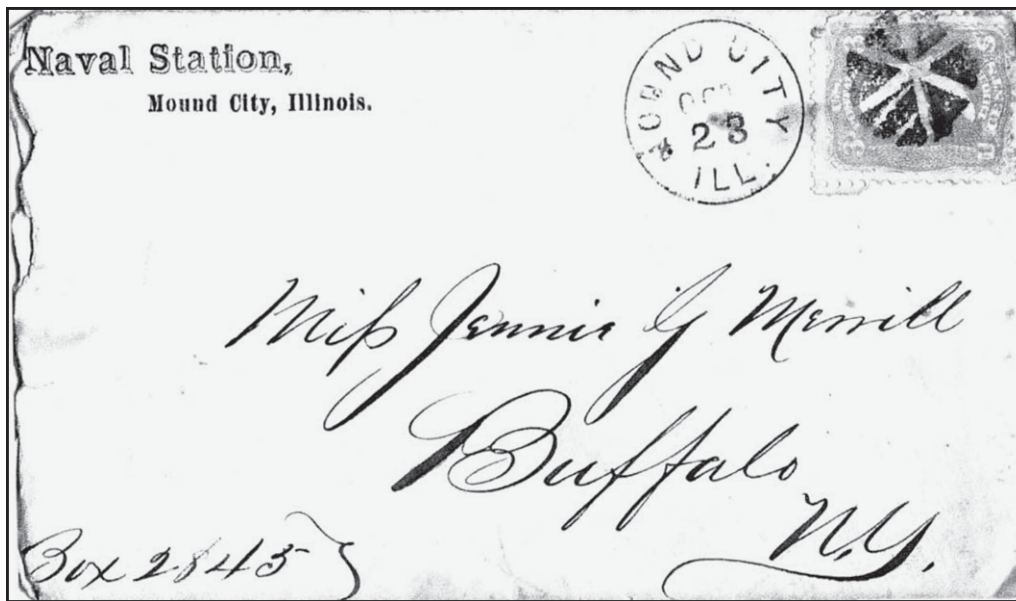 Naval Station,
Mound City, Illinois.
MOUND CITY
23
ILL.
3 3
Miss Jennie G Merrill
Buffalo
N.Y.
Box 2843